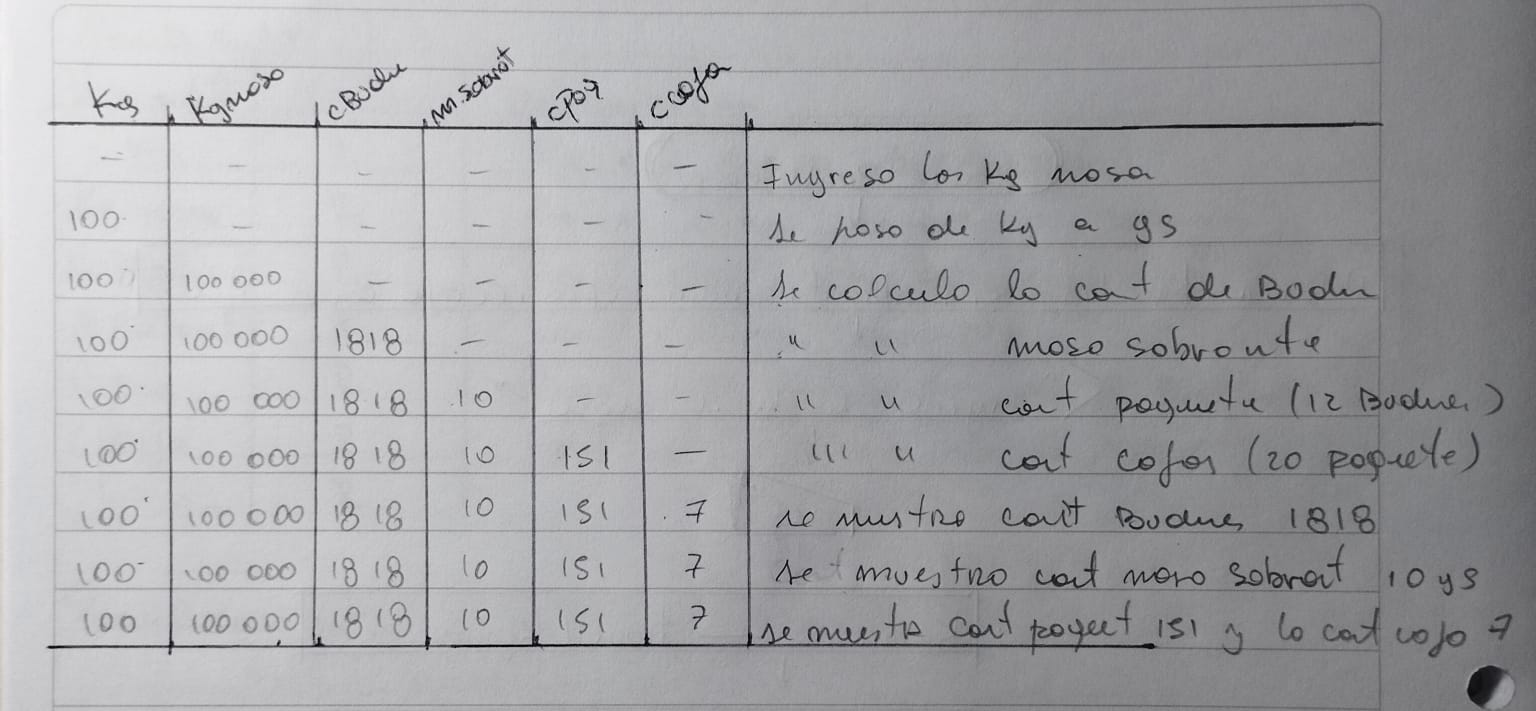 Kg Kgmasa cBudin m.sobrat cPaq ccaja
- - - - - - Ingreso los Kg masa
100 - - - - - se paso de Kg a gs
100 100 000 - - - - se calculo la cant de Budin
100 100 000 1818 - - - " " masa sobrante
100 100 000 1818 10 - - " " cant paquete (12 Budines)
100 100 000 1818 10 151 - " " cant cajas (20 paquete)
100 100 000 1818 10 151 7 se mustra cant Budines 1818
100 100 000 1818 10 151 7 se muestra cant masa sobrat 10 gs
100 100 000 1818 10 151 7 se muestra cant paquet 151 y la cant caja 7